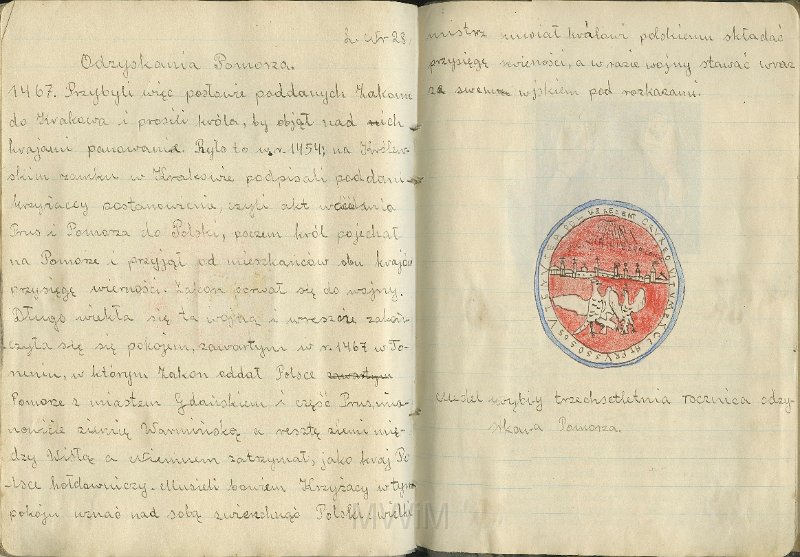 L. Nr 28.
Odzyskania Pomorza.
1467. Przybyli więc posłowie poddanych Zakonu
do Krakowa i prosili króla, by objął nad nich
krajami panowanie. Było to w r. 1454; na Królew-
skim zamku w Krakowie podpisali poddani
krzyżaccy postanowienie, czyli akt wcielenia
Prus i Pomorza do Polski, poczem król pojechał
na Pomorze i przyjął od mieszkańców obu krajów
przysięgę wierności. Zakon zerwał się do wojny.
Długo wlekła się ta wojna i wreszcie zakoń-
czyła się się pokojem, zawartym w r. 1467 w To-
runiu, w którym Zakon oddał Polsce zawartym
Pomorze z miastem Gdańskiem i część Prus, mia-
nowicie ziemię Warmińską a resztę ziemi mię-
dzy Wisłą a Niemnem zatrzymał, jako kraj Po-
lsce hołdowniczy. Musieli bowiem Krzyżacy w tym
pokoju uznać nad sobą zwierzchność Polski. Wielki
mistrz musiał królowi polskiemu składać
przysięgę wierności, a w razie wojny stawać wraz
ze swem wojskiem pod rozkazami.
Medel wybity trzechsetletnia rocznica odzy-
skana Pomorza.
MWM